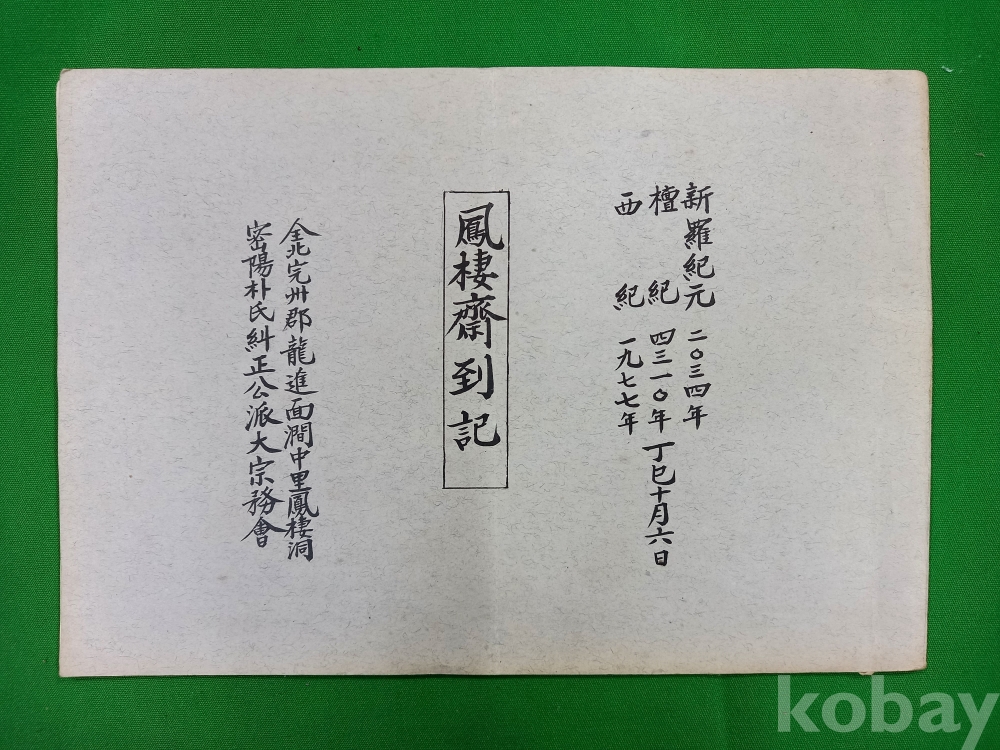 新羅紀元 二〇三四年
檀紀 四三一〇年 丁巳十月六日
西紀 一九七七年
鳳棲齋到記
全北完州郡龍進面澗中里鳳棲洞
密陽朴氏糾正公派大宗務會
kobay